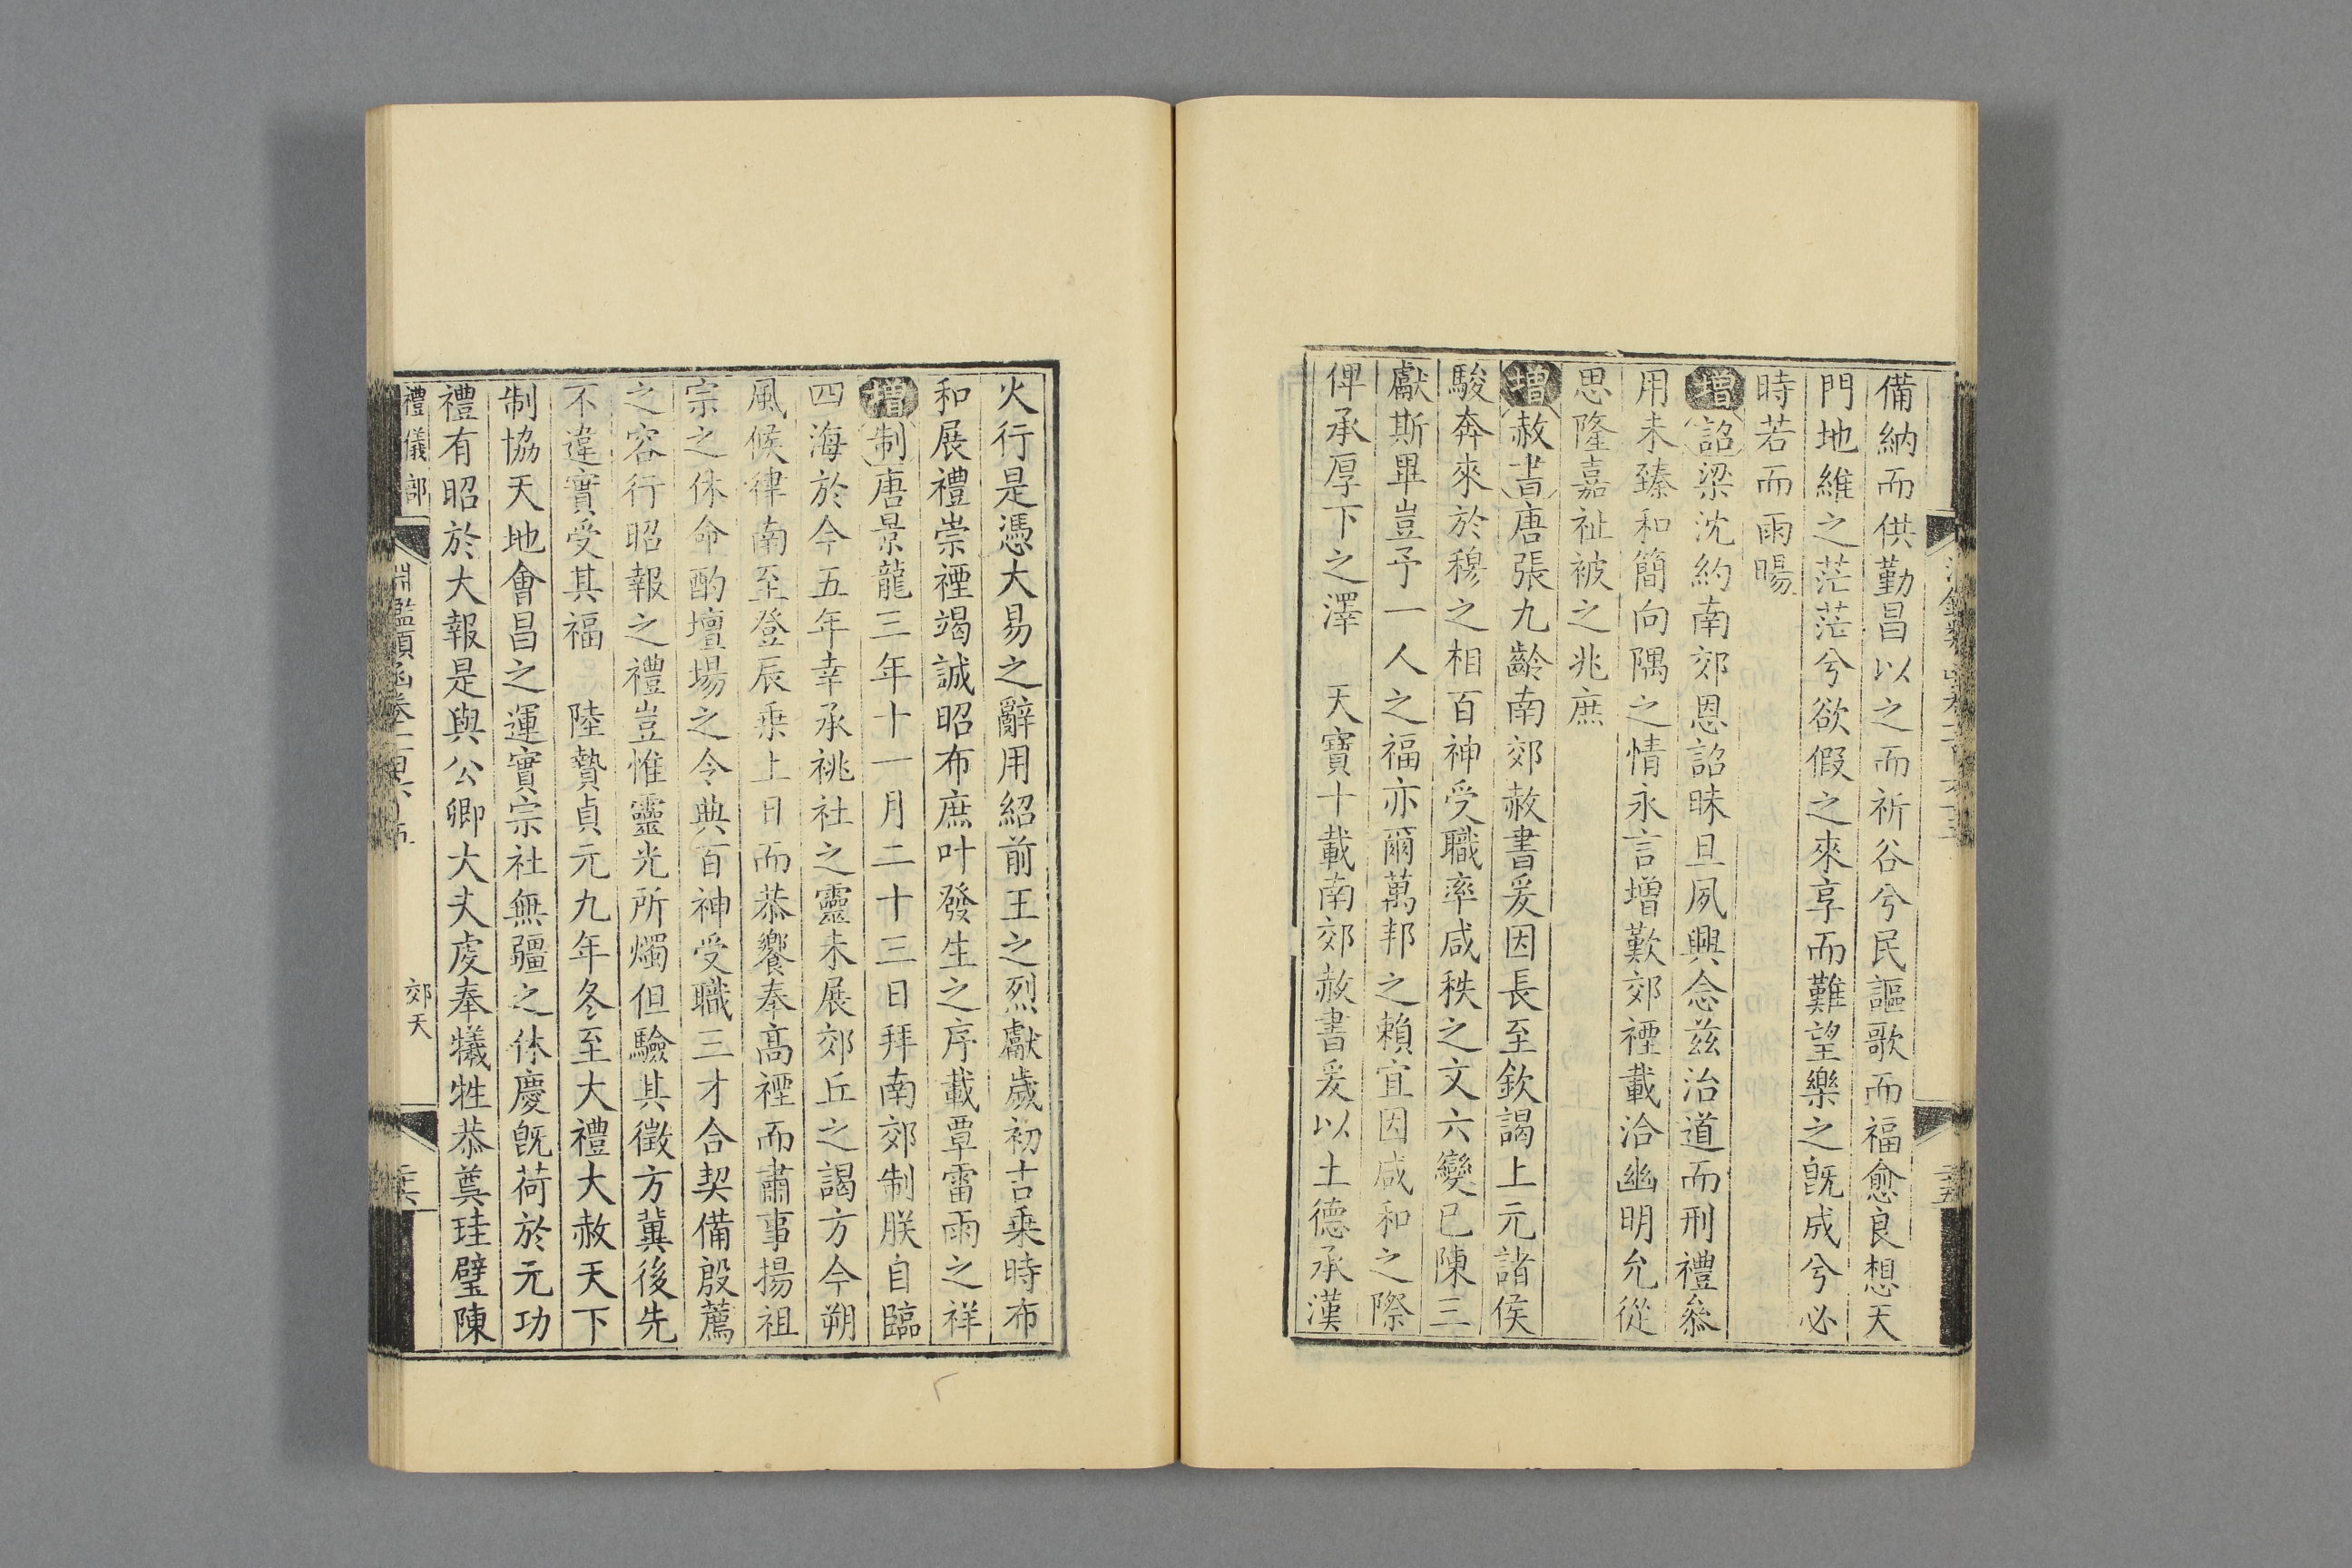 備納而供勤昌以之而祈谷兮民謳歌而福愈良想天
門地維之茫茫兮欲假之來享而難望樂之旣成兮必
時若而雨暘
增詔梁沈約南郊恩詔昧旦夙興念茲治道而刑禮叅
用未臻和簡向隅之情永言增歎郊禋載洽幽明允從
思隆嘉祉被之兆庶
增赦書唐張九齡南郊赦書爰因長至欽謁上元諸侯
駿奔來於穆之相百神受職率咸秩之文六變已陳三
獻斯畢豈予一人之福亦爾萬邦之賴宜因咸和之際
俾承厚下之澤　天寶十載南郊赦書爰以土德承漢
火行是憑大易之辭用紹前王之烈獻歲初吉乘時布
和展禮崇禋竭誠昭布庶叶發生之序載覃雷雨之祥
增制唐景龍三年十一月二十三日拜南郊制朕自臨
四海於今五年幸承祧社之靈未展郊丘之謁方今朔
風候律南至登辰乘上日而恭饗奉高禋而肅事揚祖
宗之休命酌壇場之令典百神受職三才合契備殷薦
之容行昭報之禮豈惟靈光所燭但驗其徵方冀後先
不違實受其福　陸贄貞元九年冬至大禮大赦天下
制協天地會昌之運實宗社無疆之休慶旣荷於元功
禮有昭於大報是與公卿大夫虔奉犧牲恭奠珪璧陳
禮儀部
郊天